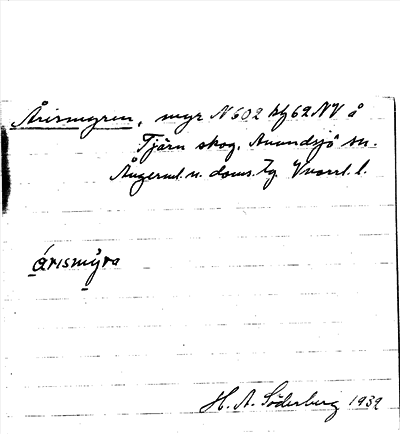 Årismyren, myr N 602 kg 62 NV å
Tjärn skog, Anundsjö sn.
Ångerml. n. doms. Vnorrl. l.
årismy̆ra
H. A. Söderberg 1932